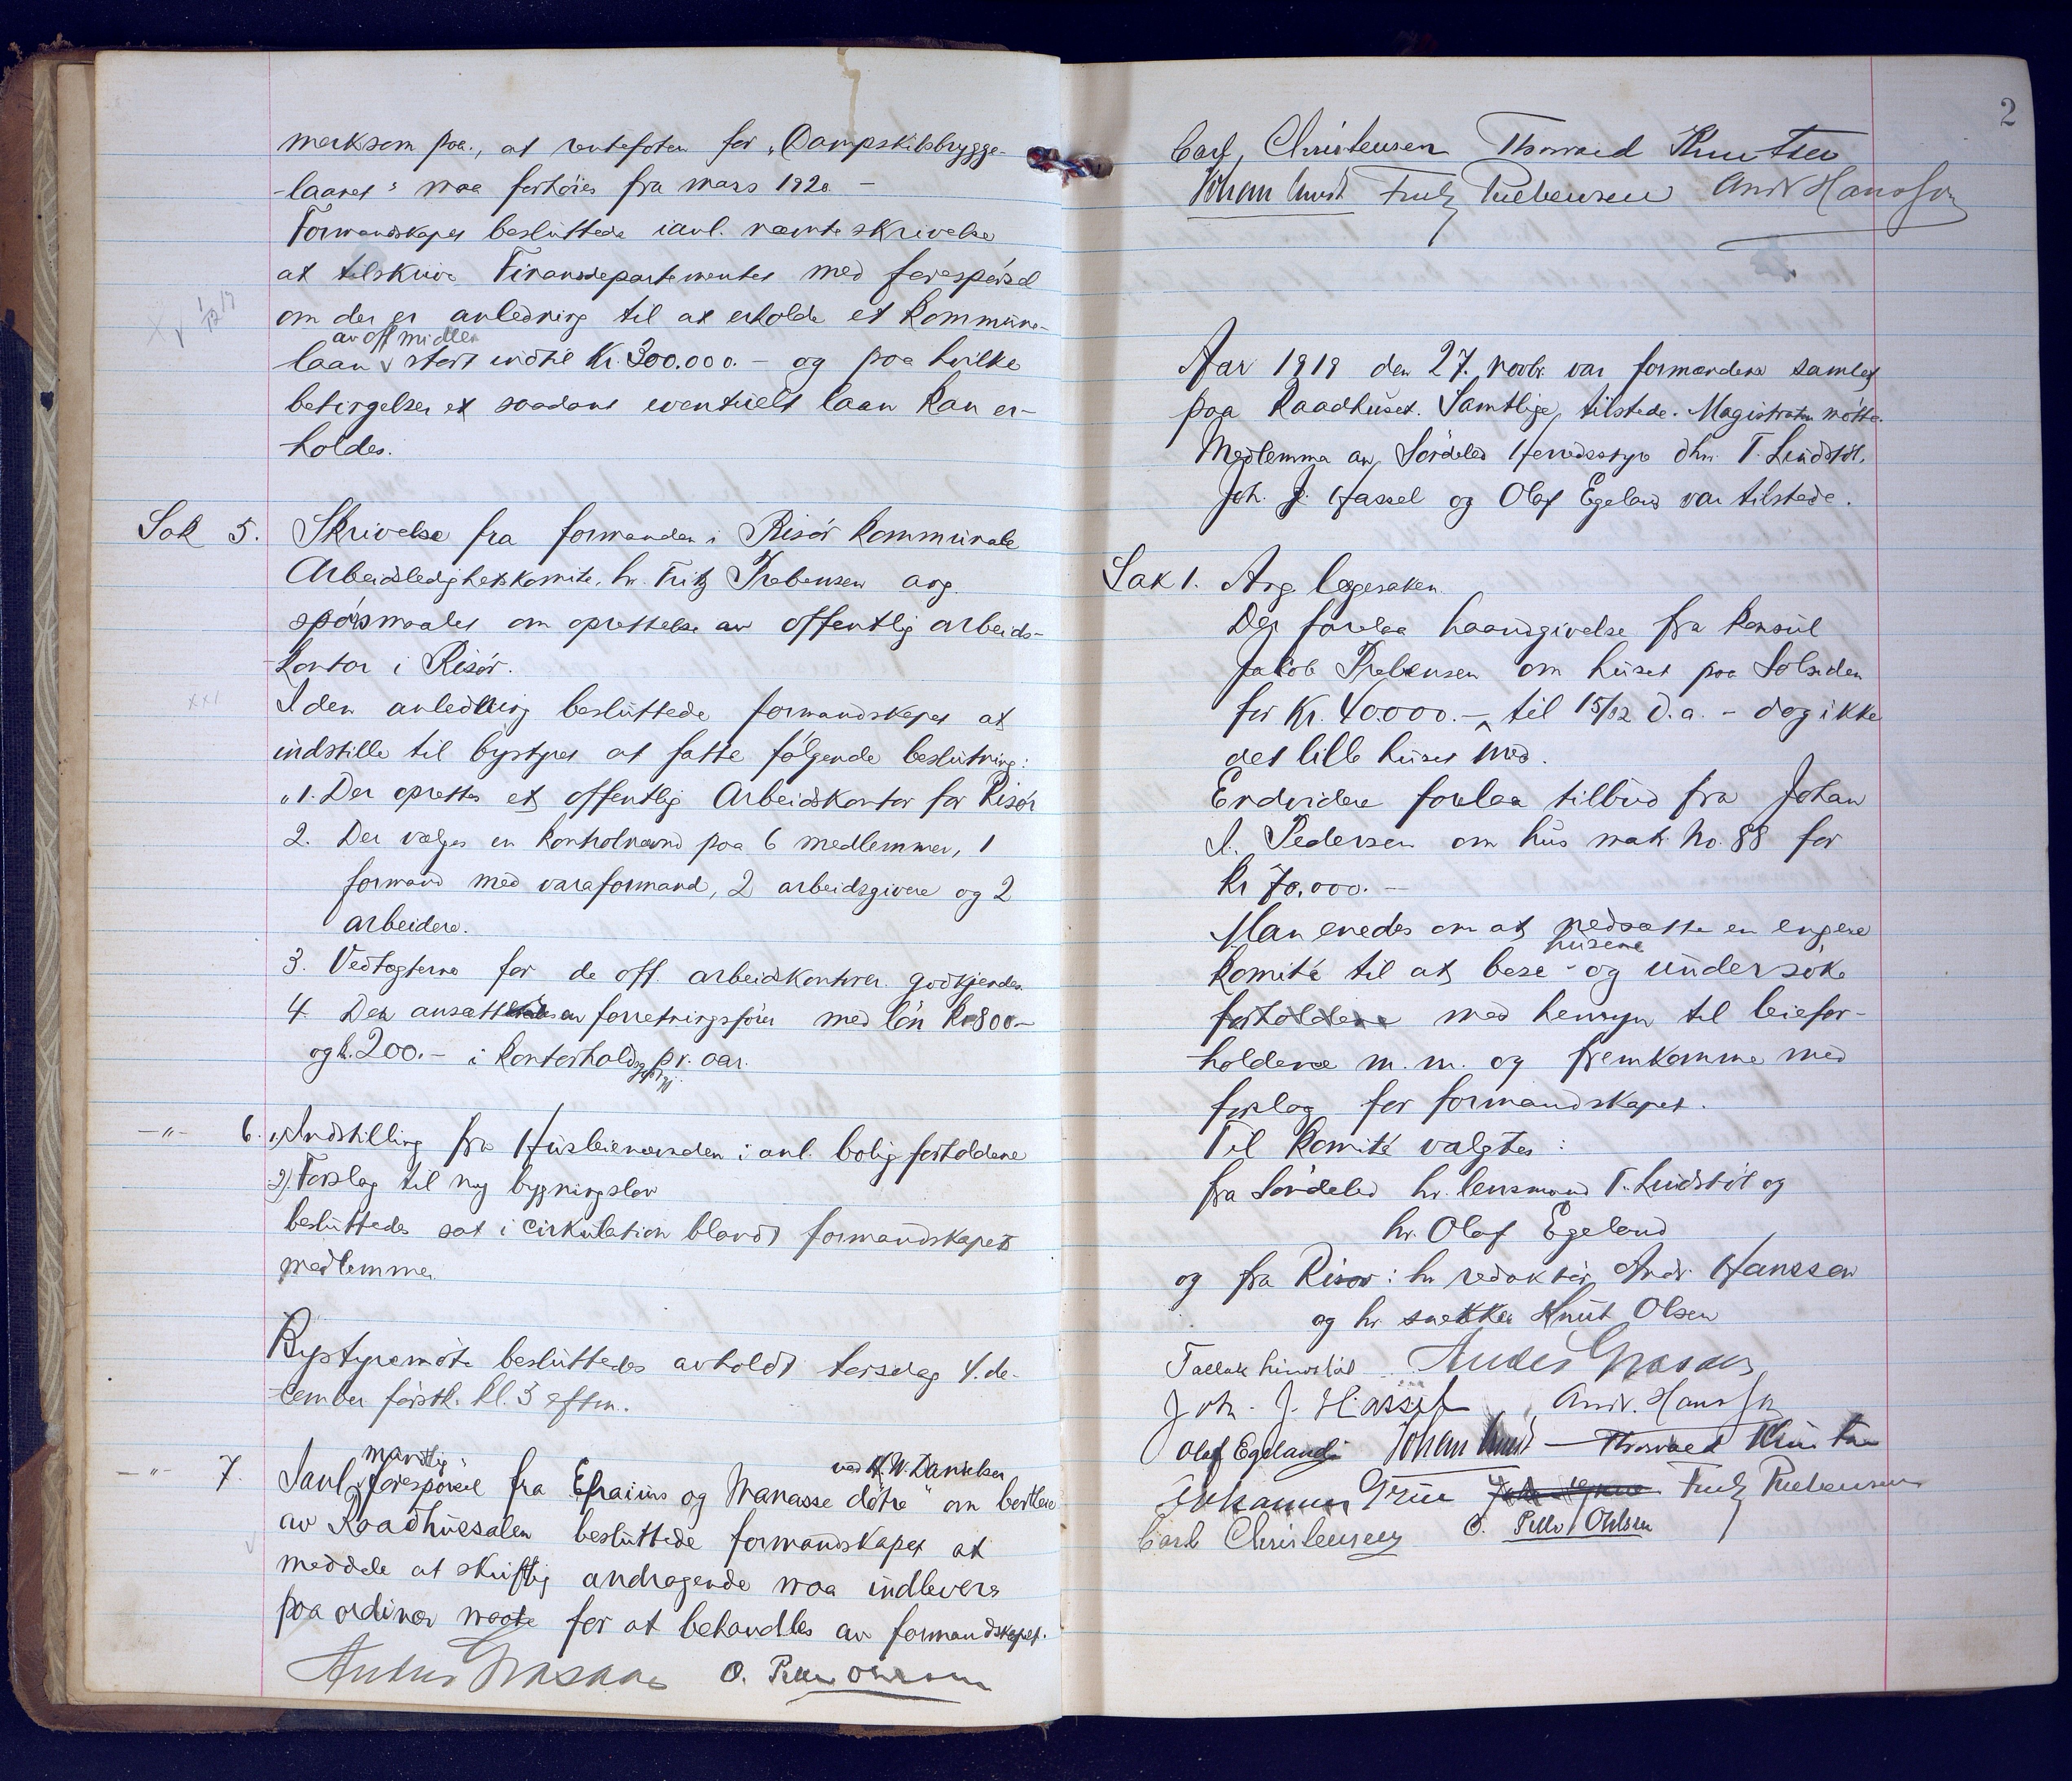 merksom paa, at rentefoten for „Dampskibsbrygge-
-laanet“ maa forhöies fra mars 1920 -
Formandskapet besluttede i anl. nævnte skrivelse
at tilskrive Finansdepartementet med forespörsel
om der er anledning til at erholde et kommune-
av off midler
laan v stort indtil Kr. 300.000.- og paa hvilke
betingelser et saadant eventuelt laan kan er-
holdes.
Sak 5. Skrivelse fra formanden i Risör kommunale
Arbeidsledighetskomite, hr. Fritz Prebensen ang.
spörsmaalet om oprettelse av offentlig arbeids-
kontor i Risör.
I den anledning besluttede formandskapet at
indstille til bystyret at fatte fölgende beslutning:
„1. Der oprettes et offentlig Arbeidskontor for Risör
2. Der vælges en kontrolnævnd paa 6 medlemmer, 1
formand med varaformand, 2 arbeidsgivere og 2
arbeidere.
3. Vedtægterne for de off. arbeidskontorer godkjendes
4. Der ansættes en forretningsförer med lön Kr 800.-
og k. 200.- i kontorholdsgodtgj. pr. aar.
-"- 6. 1) Indstilling fra Husleienævnden i anl. boligforholdene
2). Forslag til ny bygningslov
besluttedes sat i cirkulation blandt formandskapets
medlemmer.
Bystyremöte besluttedes avholdt torsdag 4. de-
cember förstk. kl. 3 eftm.
-"- 7. I anl. muntlig forespörsel fra „Efraims og Manasse döttre“ ved H.W. Danielsen om bortleie
av Raadhussalen besluttede formandskapet at
meddele at skriftlig andragende maa indleveres
paa ordinær maate for at behandles av formandskapet.
Anders Grasaas O. Pello Ohlsen
2
Carl Christensen Thorvard Knutsen
Johan Lund Fritz Prebensen Andr Hanssen
Aar 1919 den 27. novbr. var formændene samlet
paa Raadhuset. Samtlige tilstede. Magistraten mötte.
Medlemma av Söndeled Herredsstyre dhrr. T. Lindstöl,
Joh. J. Hassel og Olaf Egeland var tilstede.
Sak 1. Ang. lægesaken.
Der forelaa haandgivelse fra konsul
Jakob Prebensen om huset paa Solsiden
for Kr. 40.000.- til 15/12 d.a. - dog ikke
det lille huset med.
Endvidere forelaa tilbud fra Johan
I. Pedersen om hus matr. No. 88 for
Kr 70.000.-
Man enedes om at nedsætte en engere
husene
komité til at bese - og undersöke
forholdene med hensyn til leiefor-
holdene m.m. og fremkomme med
forslag for formandskapet.
Til komité valgtes:
fra Söndeled hr. lensmand T. Lindstöl og
hr. Olaf Egeland
og fra Risör: hr redaktör Andr. Hanssen
og hr snekker Knut Olsen
Tallak Lindstöl Anders Grasaas
Joh. J. Hassel Andr. Hanssen
Olaf Egeland Johan Lund Thorvard Knutsen
Johannes Grün Fritz Prebensen
Carl Christensen O. Pello Ohlsen